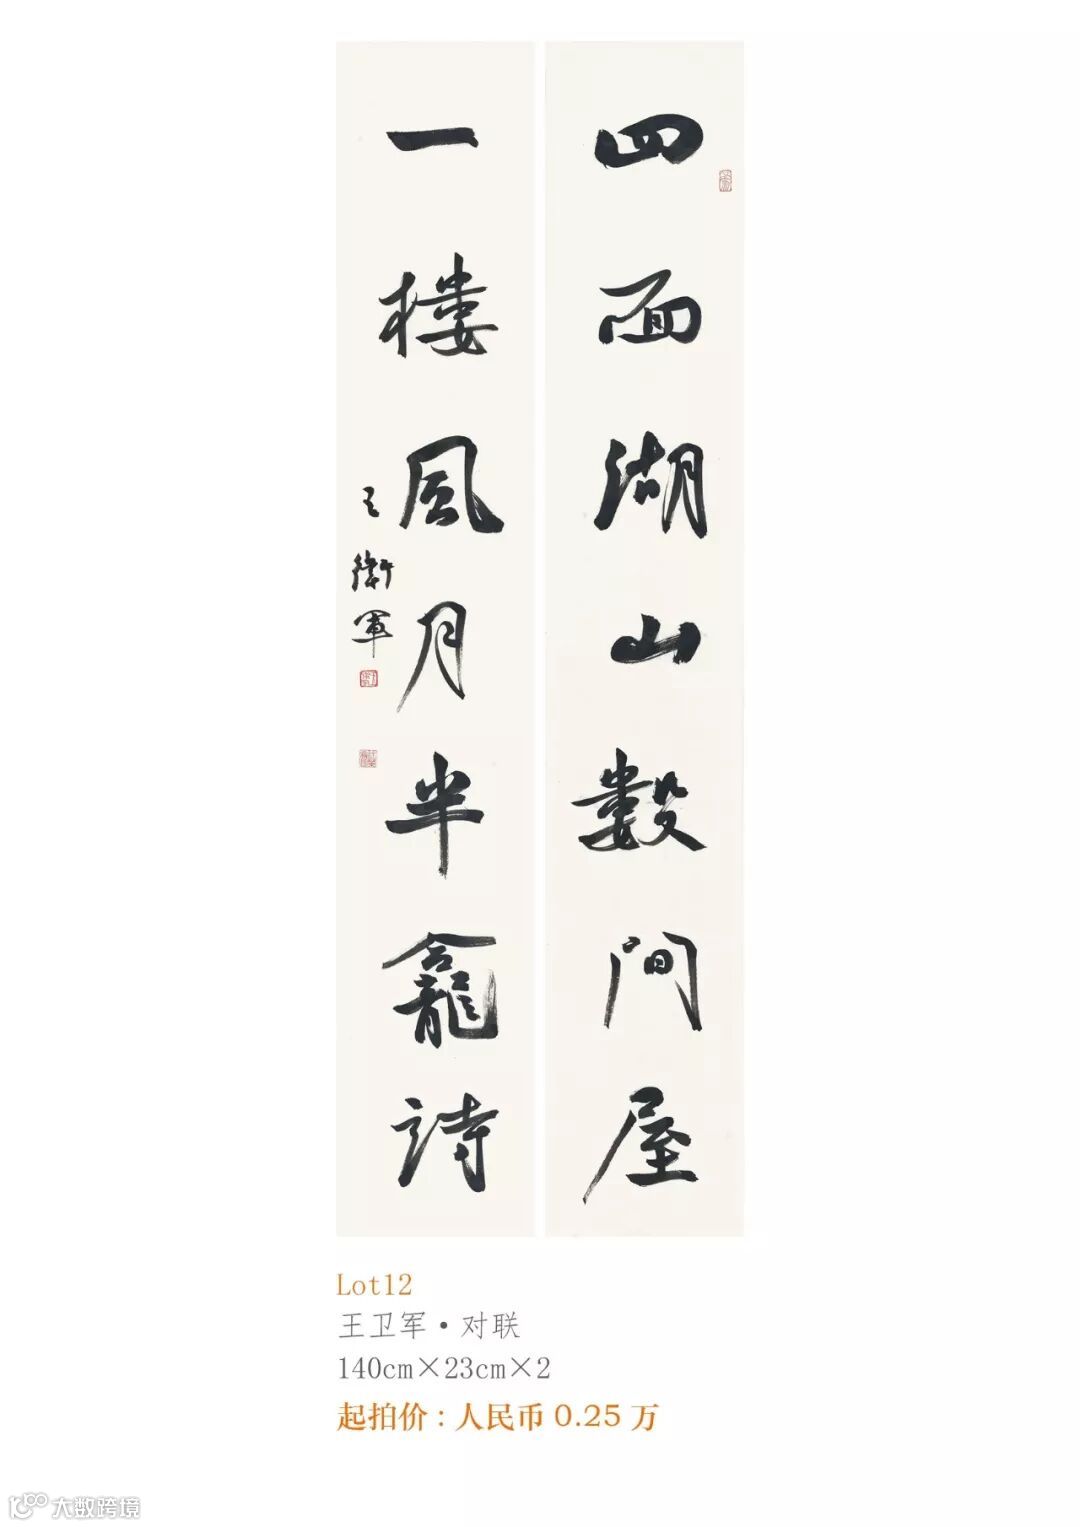 四面湖山數間屋
一樓風月半龕詩
王衛軍
Lot12
王卫军·对联
140cm×23cm×2
起拍价：人民币 0.25 万
大数跨境